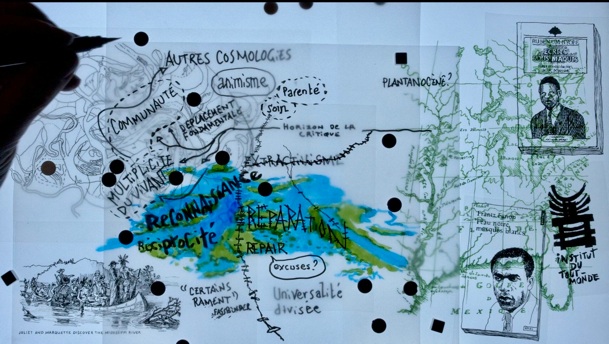 AUTRES COSMOLOGIES
animisme
Parenté
soin
COMMUNAUTÉ
MULTIPLICITÉ
DU VIVANT
HORIZON DE LA
CRITIQUE
PLANTANOCÈNE?
EXTRACTIVISME
RECONNAISSANCE
RÉCIPROCITÉ
RÉPARATION
REPAIR
excuses?
("CERTAINS
RAMENT")
Universalité
divisée
Frantz Fanon
Peau noire
masques blancs
INSTITUT
DU
TOUT-
MONDE
MEXICO
JOLIET AND MARQUETTE DISCOVER THE MISSISSIPPI RIVER